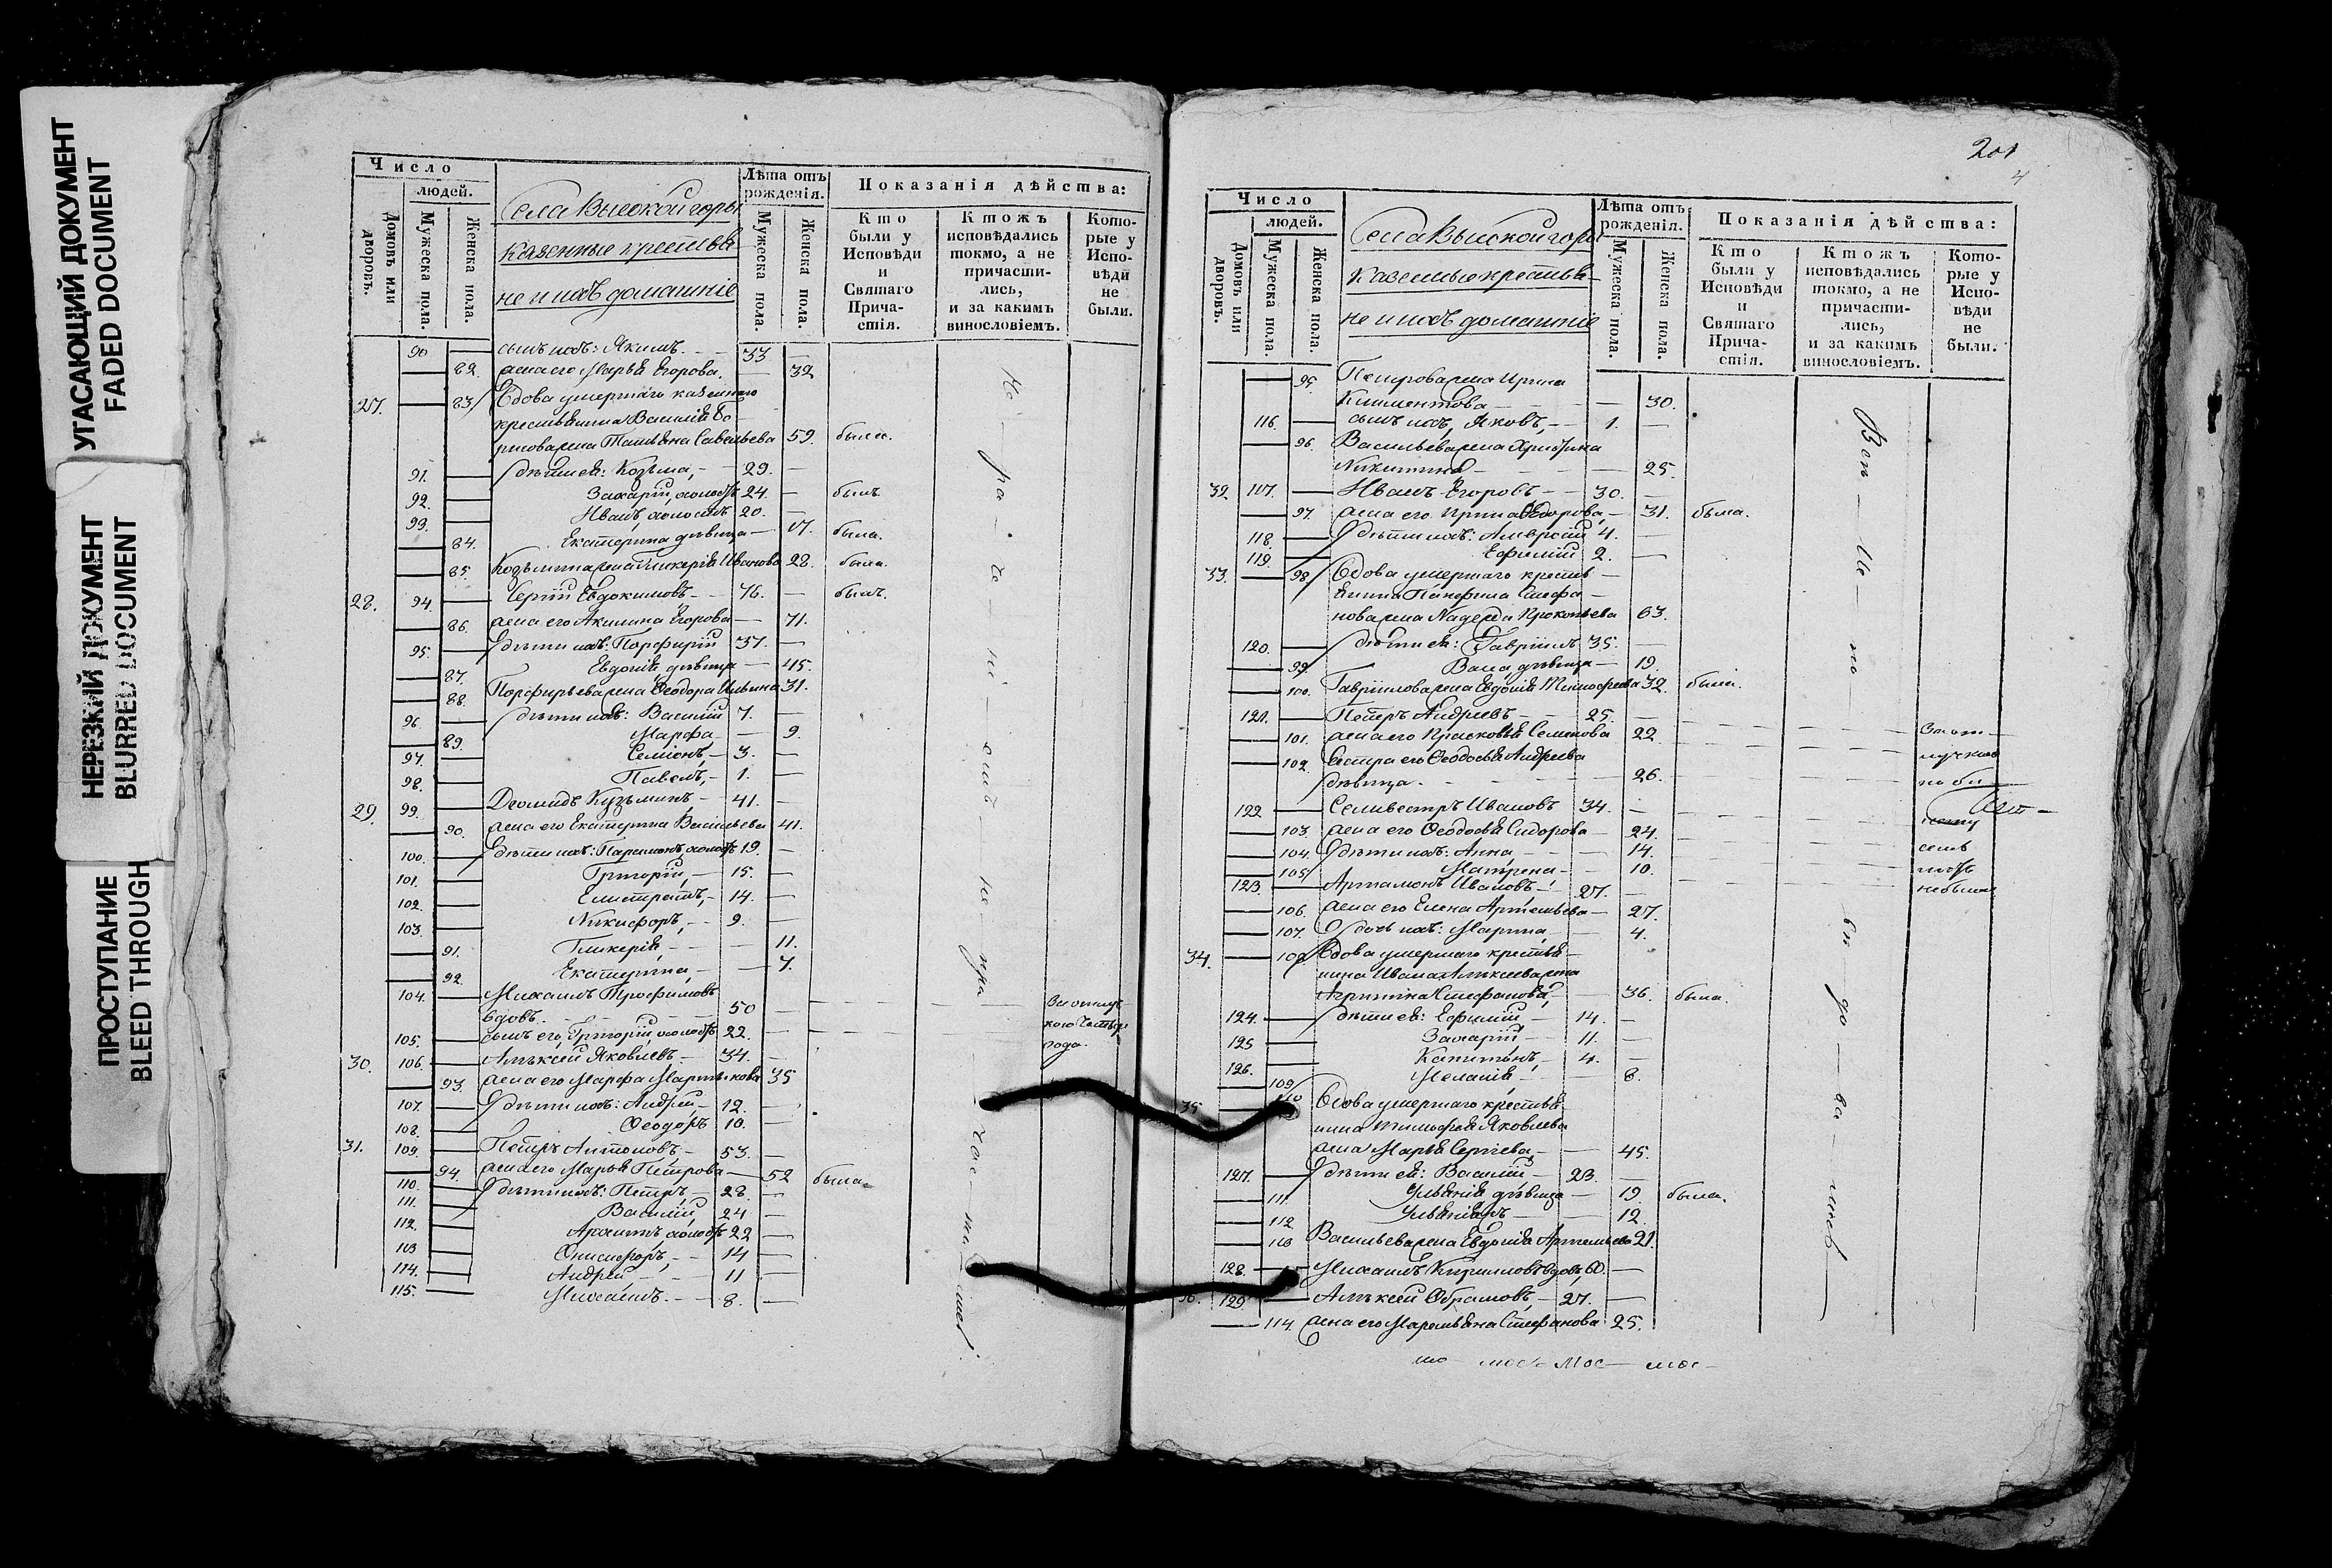 УГАСАЮЩИЙ ДОКУМЕНТ
FADED DOCUMENT
НЕРЕЗКИЙ ДОКУМЕНТ
BLURRED DOCUMENT
ПРОСТУПАНИЕ
BLEED THROUGH
Число
людей.
Домовъ или дворовъ.
Мужеска пола.
Женска пола.
Села Высокой горы
казенные крестьѧ-
не и ихъ домашніе
Лѣта отъ рожденія.
Мужеска пола.
Женска пола.
Показанія дѣйства:
Кто были у Исповѣди и Святаго Причастія.
Ктожъ исповѣдались токмо, а не причастились, и за какимъ винословіемъ.
Которые у Исповѣди не были.
90 сынъ ихъ: Якимъ. 33
82. жена его Марьѧ Егорова. 32
27. 83 Вдова умершаго казеннаго
крестьѧнина Василіѧ Бо-
рисова жена Татьѧна Савельева 59. была.
91. дѣти еѧ: Козьма, 29.
92. Захарій, холостъ 24. былъ
93. Иванъ, холостъ 20.
84. Екатерина дѣвица 17. была.
85. Козьмина жена Гликеріѧ Иванова 28. была.
28. 94. Сергій Евдокимовъ 76. былъ.
86. жена его Акилина Егорова 71.
95. дѣти ихъ: Порфирій 37.
87. Евдокіѧ, дѣвица 45.
88. Порфирьева жена Ѳеодора Ильина 31.
96. дѣти ихъ: Василій 7.
89. Марфа 9.
97. Семіонъ, 3.
98. Павелъ, 1.
29. 99. Деомидъ Кузьминъ 41.
90. жена его Екатерина Васильева 41.
100. дѣти ихъ: Парамонъ холостъ 19.
101. Григорій, 15.
102. Елистратъ, 14.
103. Никифоръ, 9.
91. Гликеріѧ, 11.
92. Екатерина, 7.
104. Михаилъ Трофимовъ
вдовъ. 50
105. сынъ его, Григорій, холостъ 22.
30. 106. Алексѣй Яковлевъ 34.
93. жена его Марфа 35
107. дѣти ихъ: Андрей 12.
108. Ѳеодоръ 10.
31. 109. Петръ Антоновъ 53.
94. жена его Марьѧ Петрова 52 была.
110. дѣти ихъ: Петръ, 28.
111. Василій, 24
112. холостъ 22
113 Онисифоръ, 14
114. Андрей, 11
115. Михаилъ. 8.
201
4
Число
людей.
Домовъ или дворовъ.
Мужеска пола.
Женска пола.
Села Высокой горы
казенные крестьѧ-
не и ихъ домашніе
Лѣта отъ рожденія.
Мужеска пола.
Женска пола.
Показанія дѣйства:
Кто были у Исповѣди и Святаго Причастія.
Ктожъ исповѣдались токмо, а не причастились, и за какимъ винословіемъ.
Которые у Исповѣди не были.
95. Петрова жена Ирина
Климентова 30.
116. сынъ ихъ, Яковъ, 1.
96. Васильева жена Христина
Никитина 25.
32 117. Иванъ Егоровъ 30.
97. жена его Ирина Ѳедорова, 31. была.
118. дѣти ихъ: Амвросій 4.
119. Ефимій 2.
33. 98 Вдова умершаго крестьѧ-
нина Панфила Стефа-
нова жена Надежда Прокопьева 63.
120. дѣти еѧ: Гавріилъ 35.
99. дѣвица 19.
100. Гавріилова жена Евдокіѧ Тимофеева 32. была.
121. Петръ Андреевъ 25.
101. жена его Прасковьѧ Семенова 22
102. Сестра его Ѳеодосьѧ Андреева
дѣвица. 26.
122 Селиверстръ Ивановъ 34.
103. жена его Ѳеодосьѧ Сидорова 24.
104. дѣти ихъ: Анна, 14.
105 Матрена 10.
123 Артамонъ Ивановъ 27.
106. жена его Елена Артемьева 27.
107. дочь ихъ: Марина 4.
34. 108 Вдова умершаго крестьѧ-
нина Ивана Алексеева жена
Агрипина Стефанова, 36. была.
124. дѣти еѧ: Ефимій 14.
125 Захарій 11.
126. Капитонъ, 4.
109 Меланіѧ 8.
35 110 Вдова умершаго крестьѧ-
нина Тимофеѧ Яковлева
жена Марьѧ Сергіева, 45.
127. дѣти еѧ: Василій 23.
111 дѣвица 19. была.
112 12.
113 Васильева жена Евдокіѧ Артемьева 21.
128. Михаилъ Кириловъ вдовъ, 60.
36. 129 Алексѣй Обрамовъ, 27.
114. жена его Маремьѧна Стефанова 25.